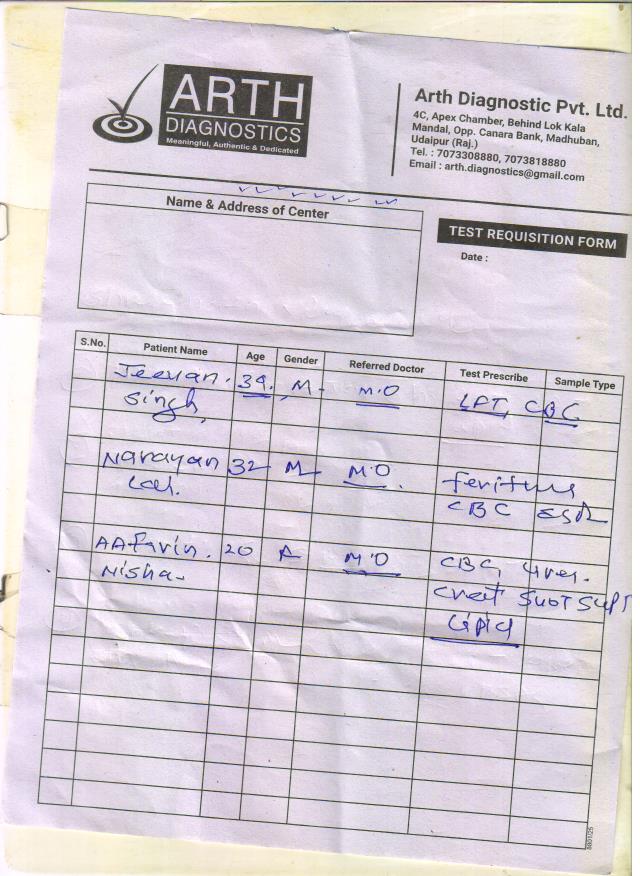 ARTH
DIAGNOSTICS
Meaningful, Authentic & Dedicated
Arth Diagnostic Pvt. Ltd.
4C, Apex Chamber, Behind Lok Kala
Mandal, Opp. Canara Bank, Madhuban,
Udaipur (Raj.)
Tel. : 7073308880, 7073818880
Email : arth.diagnostics@gmail.com
Name & Address of Center
TEST REQUISITION FORM
Date :
S.No. Patient Name Age Gender Referred Doctor Test Prescribe Sample Type
Jeevan. 39. M- M.O LFT, CBC
Singh,
Narayan 32 M M.O
Lal. CBC ESR
AAfrin. 20 F M.O CBC,
Nisha- SGOT SGPT